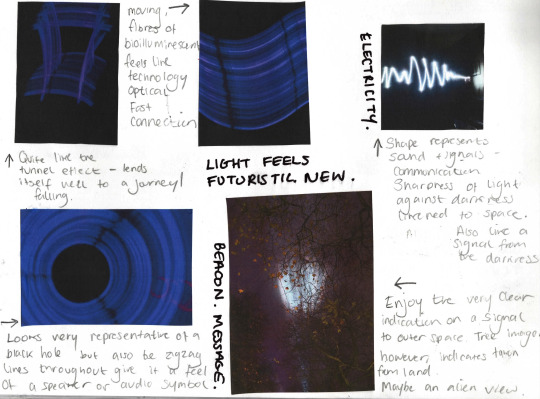 moving,
fibres of
bioilluminescent
feels like
technology
Optical
Fast
connection
ELECTRICITY.
Quite like the
tunnel effect - lends
itself well to a journey/
falling.
LIGHT FEELS
FUTURISTIC. NEW.
Shape represents
sound + signals -
communication
Sharpness of light
against darkness
to space.
Also like a
signal from
the darkness
BEACON. MESSAGE.
Looks very representative of a
black hole but also the zigzag
lines throughout give it a feel
of a speaker or audio symbol.
Enjoy the very clear
indication on a signal
to outer space. Tree image
however, indicates taken
from land.
Maybe an alien view.